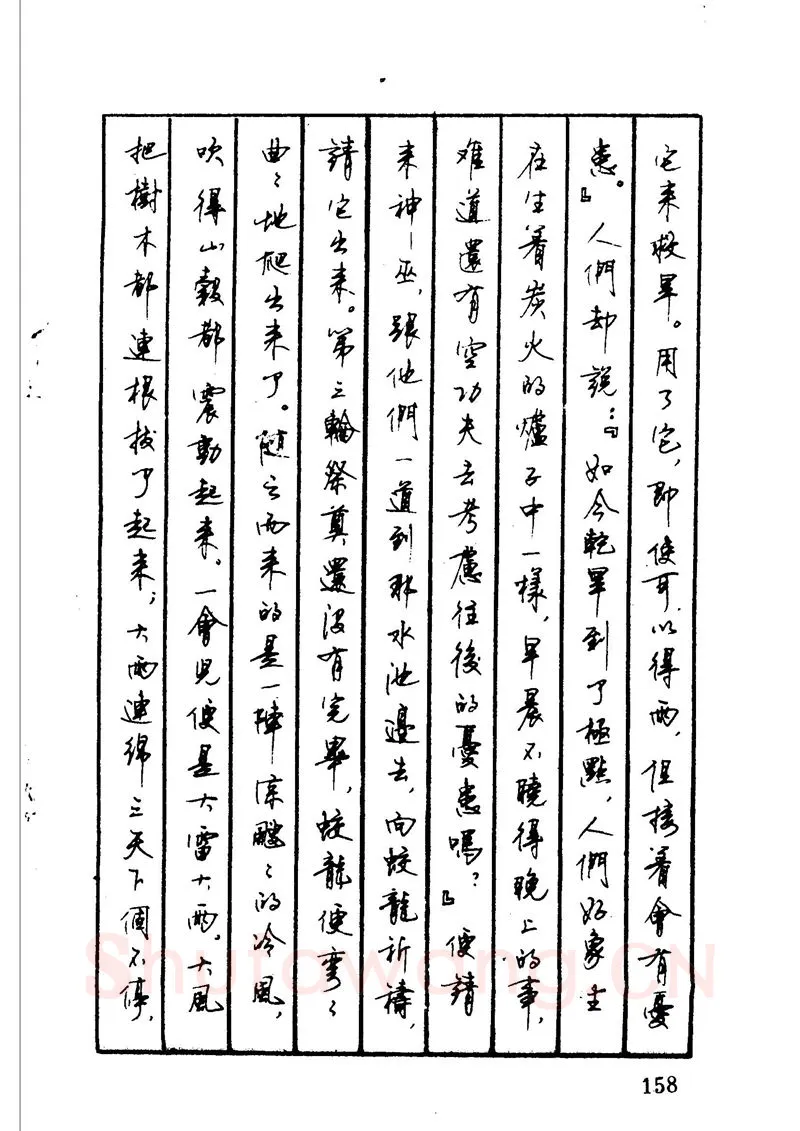 它来救旱。用了它，即使可以得雨，但接着會有憂
患。』人們却説：『如今乾旱到了極點，人們好象生
在生着炭火的爐子中一樣，早晨不曉得晚上的事，
难道還有空功夫去考慮往後的憂患嗎？』便請
来神巫，跟他們一道到那水池邊去，向蛟龍祈禱，
請它出来。第三輪祭奠還没有完畢，蛟龍便彎々
曲々地爬出来了。随之而来的是一陣涼飕々的冷風，
吹得山穀都震動起来。一會児便是大雷大雨，大風
把樹木都連根拔了起来；大雨連綿三天下個不停，
158
Shufawang.CN